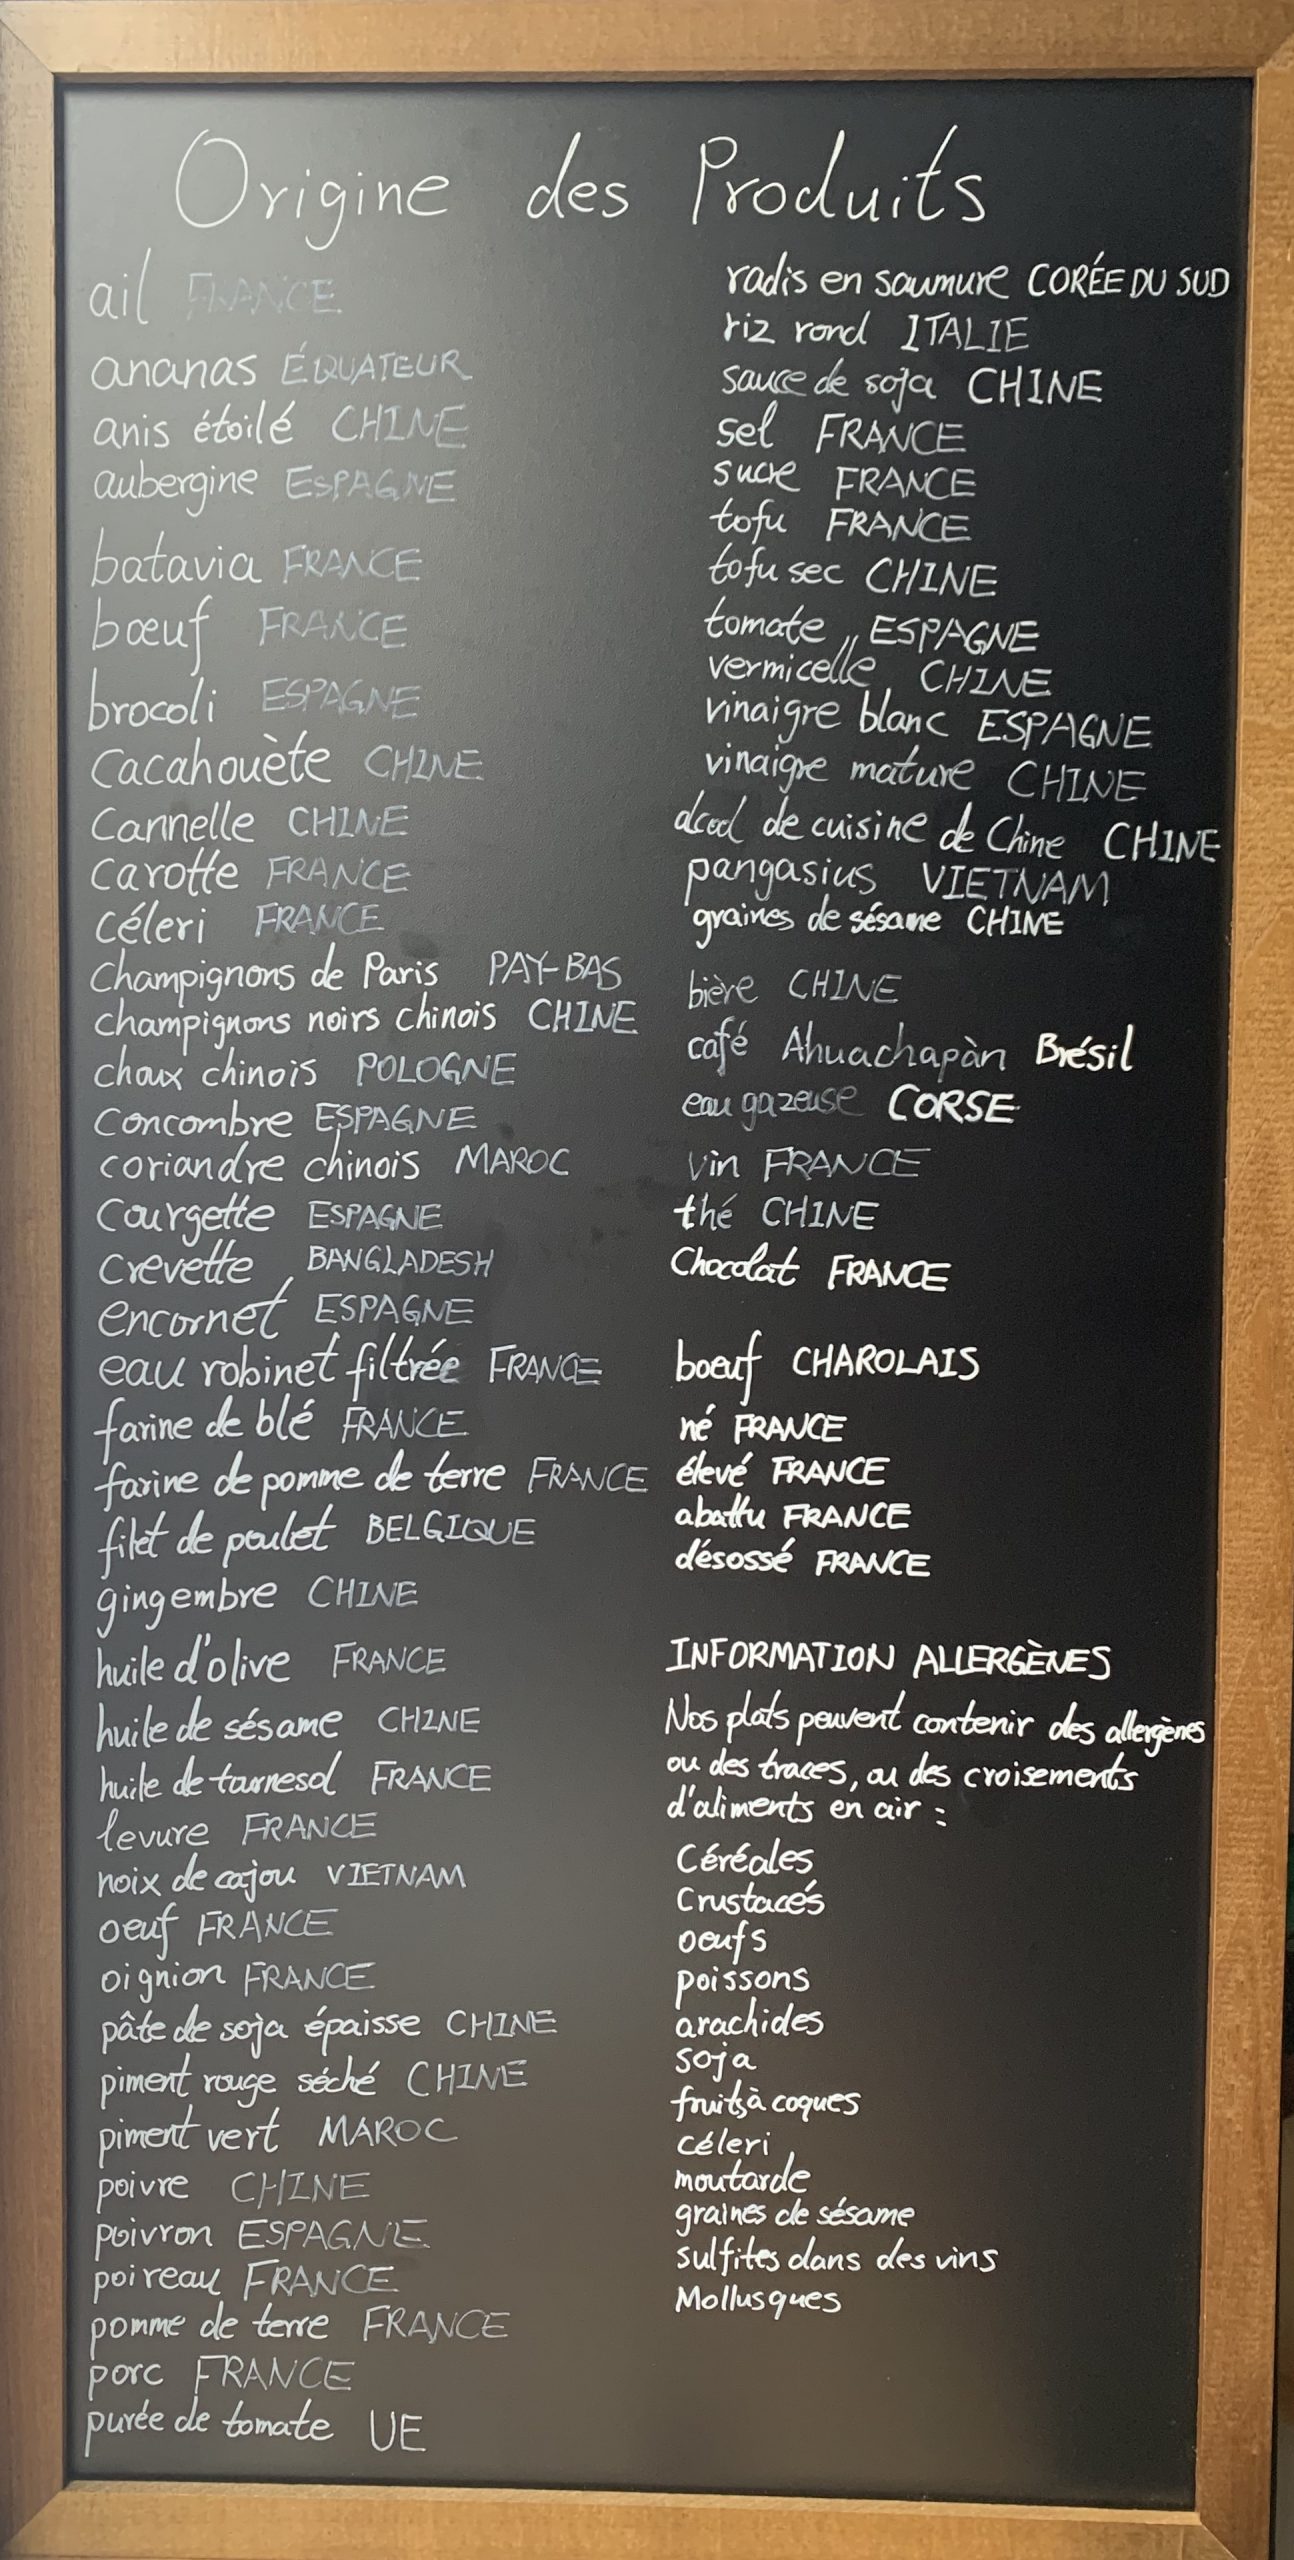 Origine des Produits
ail FRANCE
ananas ÉQUATEUR
anis étoilé CHINE
aubergine ESPAGNE
batavia FRANCE
bœuf FRANCE
brocoli ESPAGNE
Cacahouète CHINE
Cannelle CHINE
Carotte FRANCE
céleri FRANCE
champignons de Paris PAY-BAS
champignons noirs chinois CHINE
choux chinois POLOGNE
concombre ESPAGNE
coriandre chinois MAROC
Courgette ESPAGNE
crevette BANGLADESH
encornet ESPAGNE
eau robinet filtrée FRANCE
farine de blé FRANCE
farine de pomme de terre FRANCE
filet de poulet BELGIQUE
gingembre CHINE
huile d'olive FRANCE
huile de sésame CHINE
huile de tournesol FRANCE
levure FRANCE
noix de cajou VIETNAM
oeuf FRANCE
oignion FRANCE
pâte de soja épaisse CHINE
piment rouge séché CHINE
piment vert MAROC
poivre CHINE
poivron ESPAGNE
poireau FRANCE
pomme de terre FRANCE
porc FRANCE
purée de tomate UE
radis en saumure CORÉE DU SUD
riz rond ITALIE
sauce de soja CHINE
sel FRANCE
sucre FRANCE
tofu FRANCE
tofu sec CHINE
tomate ESPAGNE
vermicelle CHINE
vinaigre blanc ESPAGNE
vinaigre mature CHINE
alcool de cuisine de Chine CHINE
pangasius VIETNAM
graines de sésame CHINE
bière CHINE
café Ahuachapàn Brésil
eau gazeuse CORSE
vin FRANCE
thé CHINE
Chocolat FRANCE
boeuf CHAROLAIS
né FRANCE
élevé FRANCE
abattu FRANCE
désossé FRANCE
INFORMATION ALLERGÈNES
Nos plats peuvent contenir des allergènes
ou des traces, ou des croisements
d'aliments en air :
Céréales
Crustacés
oeufs
poissons
arachides
soja
fruits à coques
céleri
moutarde
graines de sésame
sulfites dans des vins
Mollusques